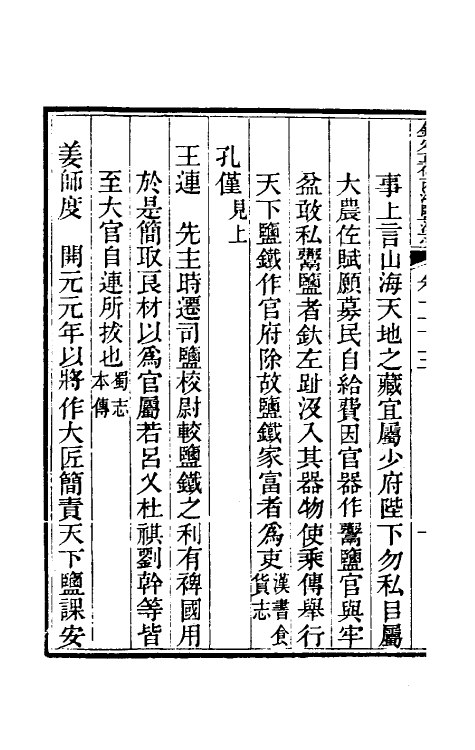 事上言山海天地之藏宜屬少府陛下勿私目屬
大農佐賦願募民自給費因官器作鬻鹽官與牢
盆敢私鬻鹽者釱左趾沒入其器物使乘傳舉行
天下鹽鐵作官府除故鹽鐵家富者為吏漢書食貨志
孔僅見上
王連　先主時遷司鹽校尉較鹽鐵之利有裨國用
於是簡取良材以為官屬若呂乂杜祺劉幹等皆
至大官自連所拔也蜀志本傳
姜師度　開元元年以將作大匠簡責天下鹽課安